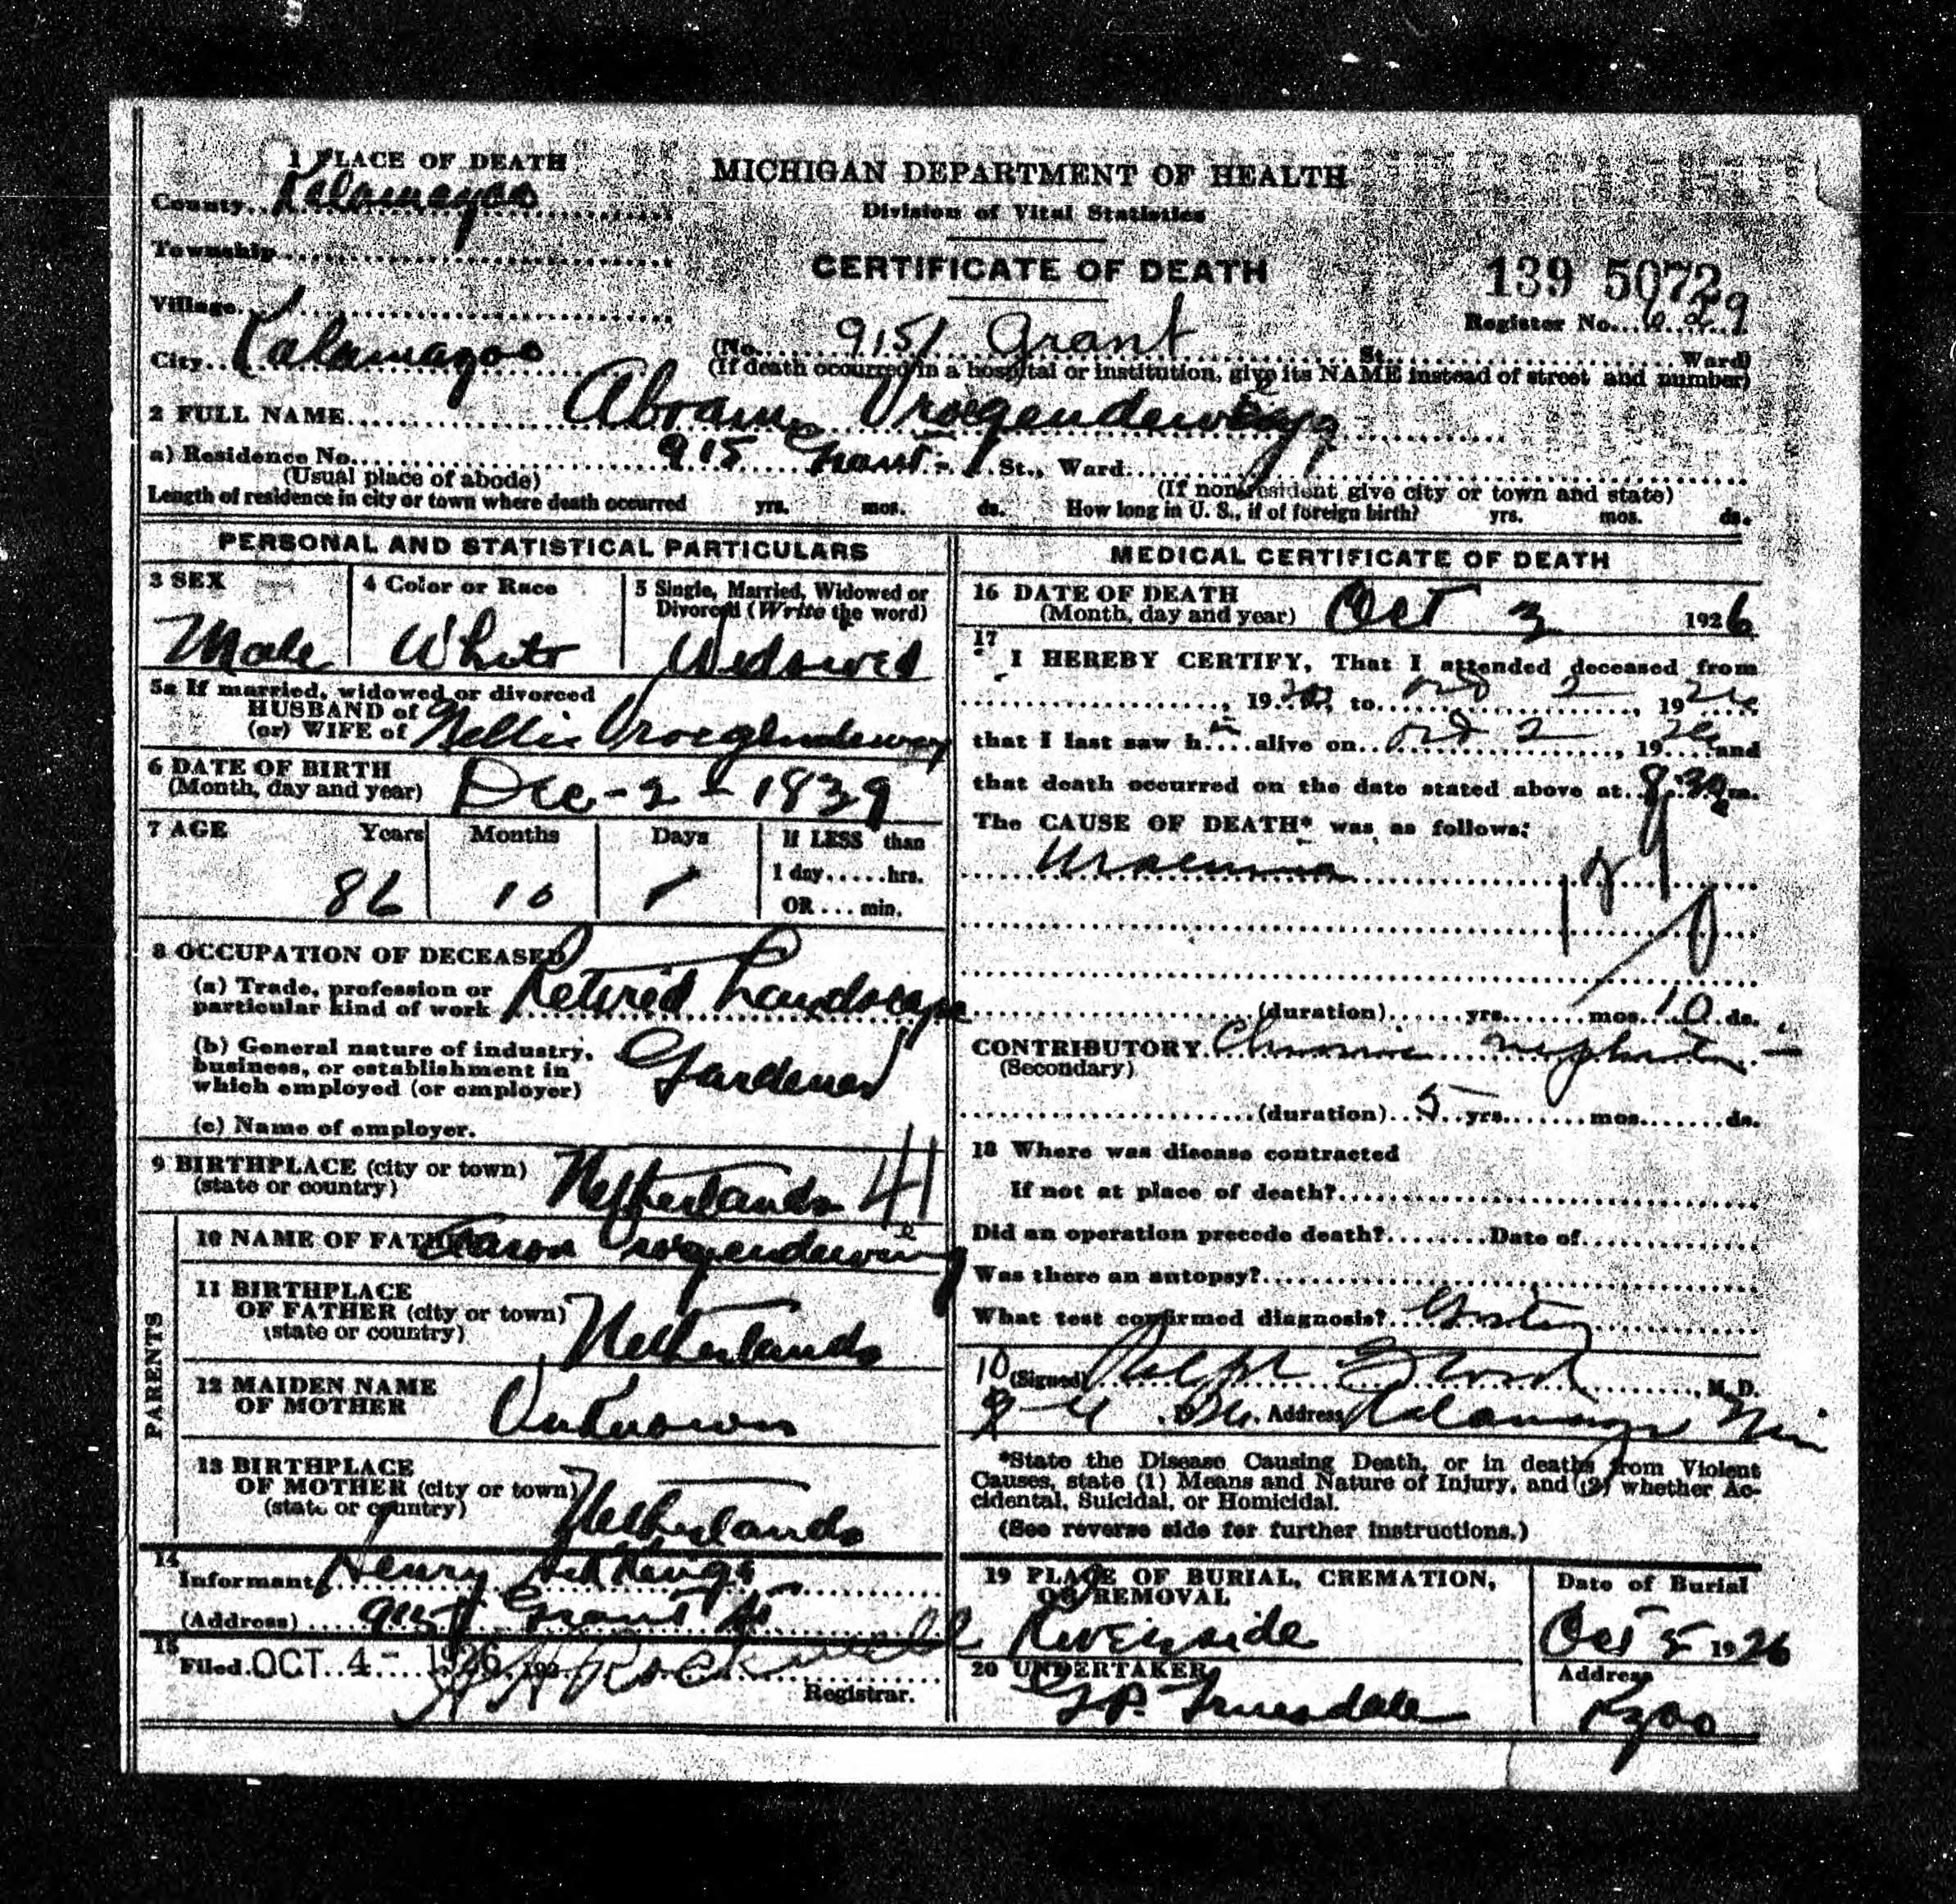 1 PLACE OF DEATH
MICHIGAN DEPARTMENT OF HEALTH
Division of Vital Statistics
County Kalamazoo
Township
CERTIFICATE OF DEATH
139 5072
Village
Register No. 629
City Kalamazoo (No. 915 Grant St. Ward)
(If death occurred in a hospital or institution, give its NAME instead of street and number)
2 FULL NAME Abram Vroegendewey
a) Residence No. 915 Grant St., Ward
(Usual place of abode) (If nonresident give city or town and state)
Length of residence in city or town where death occurred yrs. mos. ds. How long in U. S., if of foreign birth? yrs. mos. ds.
PERSONAL AND STATISTICAL PARTICULARS
3 SEX 4 Color or Race 5 Single, Married, Widowed or
Divorced (Write the word)
Male White Widowed
5a If married, widowed or divorced
HUSBAND of
(or) WIFE of Nellie Vroegendewey
6 DATE OF BIRTH
(Month, day and year) Dec - 2 - 1839
7 AGE Years Months Days If LESS than
1 day......hrs.
86 10 1 OR...min.
8 OCCUPATION OF DECEASED
(a) Trade, profession or
particular kind of work Retired Landscape
(b) General nature of industry,
business, or establishment in
which employed (or employer) Gardener
(c) Name of employer.
9 BIRTHPLACE (city or town)
(state or country) Netherlands 41
PARENTS
10 NAME OF FATHER Aaron
11 BIRTHPLACE
OF FATHER (city or town)
(state or country) Netherlands
12 MAIDEN NAME
OF MOTHER Unknown
13 BIRTHPLACE
OF MOTHER (city or town)
(state or country) Netherlands
14
Informant Henry
(Address) 915 Grant St
15
Filed OCT 4 - 1926 Rockwell
Registrar.
MEDICAL CERTIFICATE OF DEATH
16 DATE OF DEATH
(Month, day and year) Oct 3 1926
17
I HEREBY CERTIFY, That I attended deceased from
, 19 to Oct 2, 1926
that I last saw h alive on Oct 2, 1926 and
that death occurred on the date stated above at 8:30 m.
The CAUSE OF DEATH* was as follows:
Uraemia
129
(duration) yrs. mos. 10 ds.
CONTRIBUTORY Chronic nephritis
(Secondary)
(duration) 5 yrs. mos. ds.
18 Where was disease contracted
If not at place of death?
Did an operation precede death? Date of
Was there an autopsy?
What test confirmed diagnosis?
10 (Signed) Ralph , M. D.
4 , 1926. Address Kalamazoo
*State the Disease Causing Death, or in deaths from Violent
Causes, state (1) Means and Nature of Injury, and (2) whether Ac-
cidental, Suicidal, or Homicidal.
(See reverse side for further instructions.)
19 PLACE OF BURIAL, CREMATION,
OR REMOVAL
Riverside
Date of Burial
Oct 5 1926
20 UNDERTAKER
Truesdale
Address
Kzoo